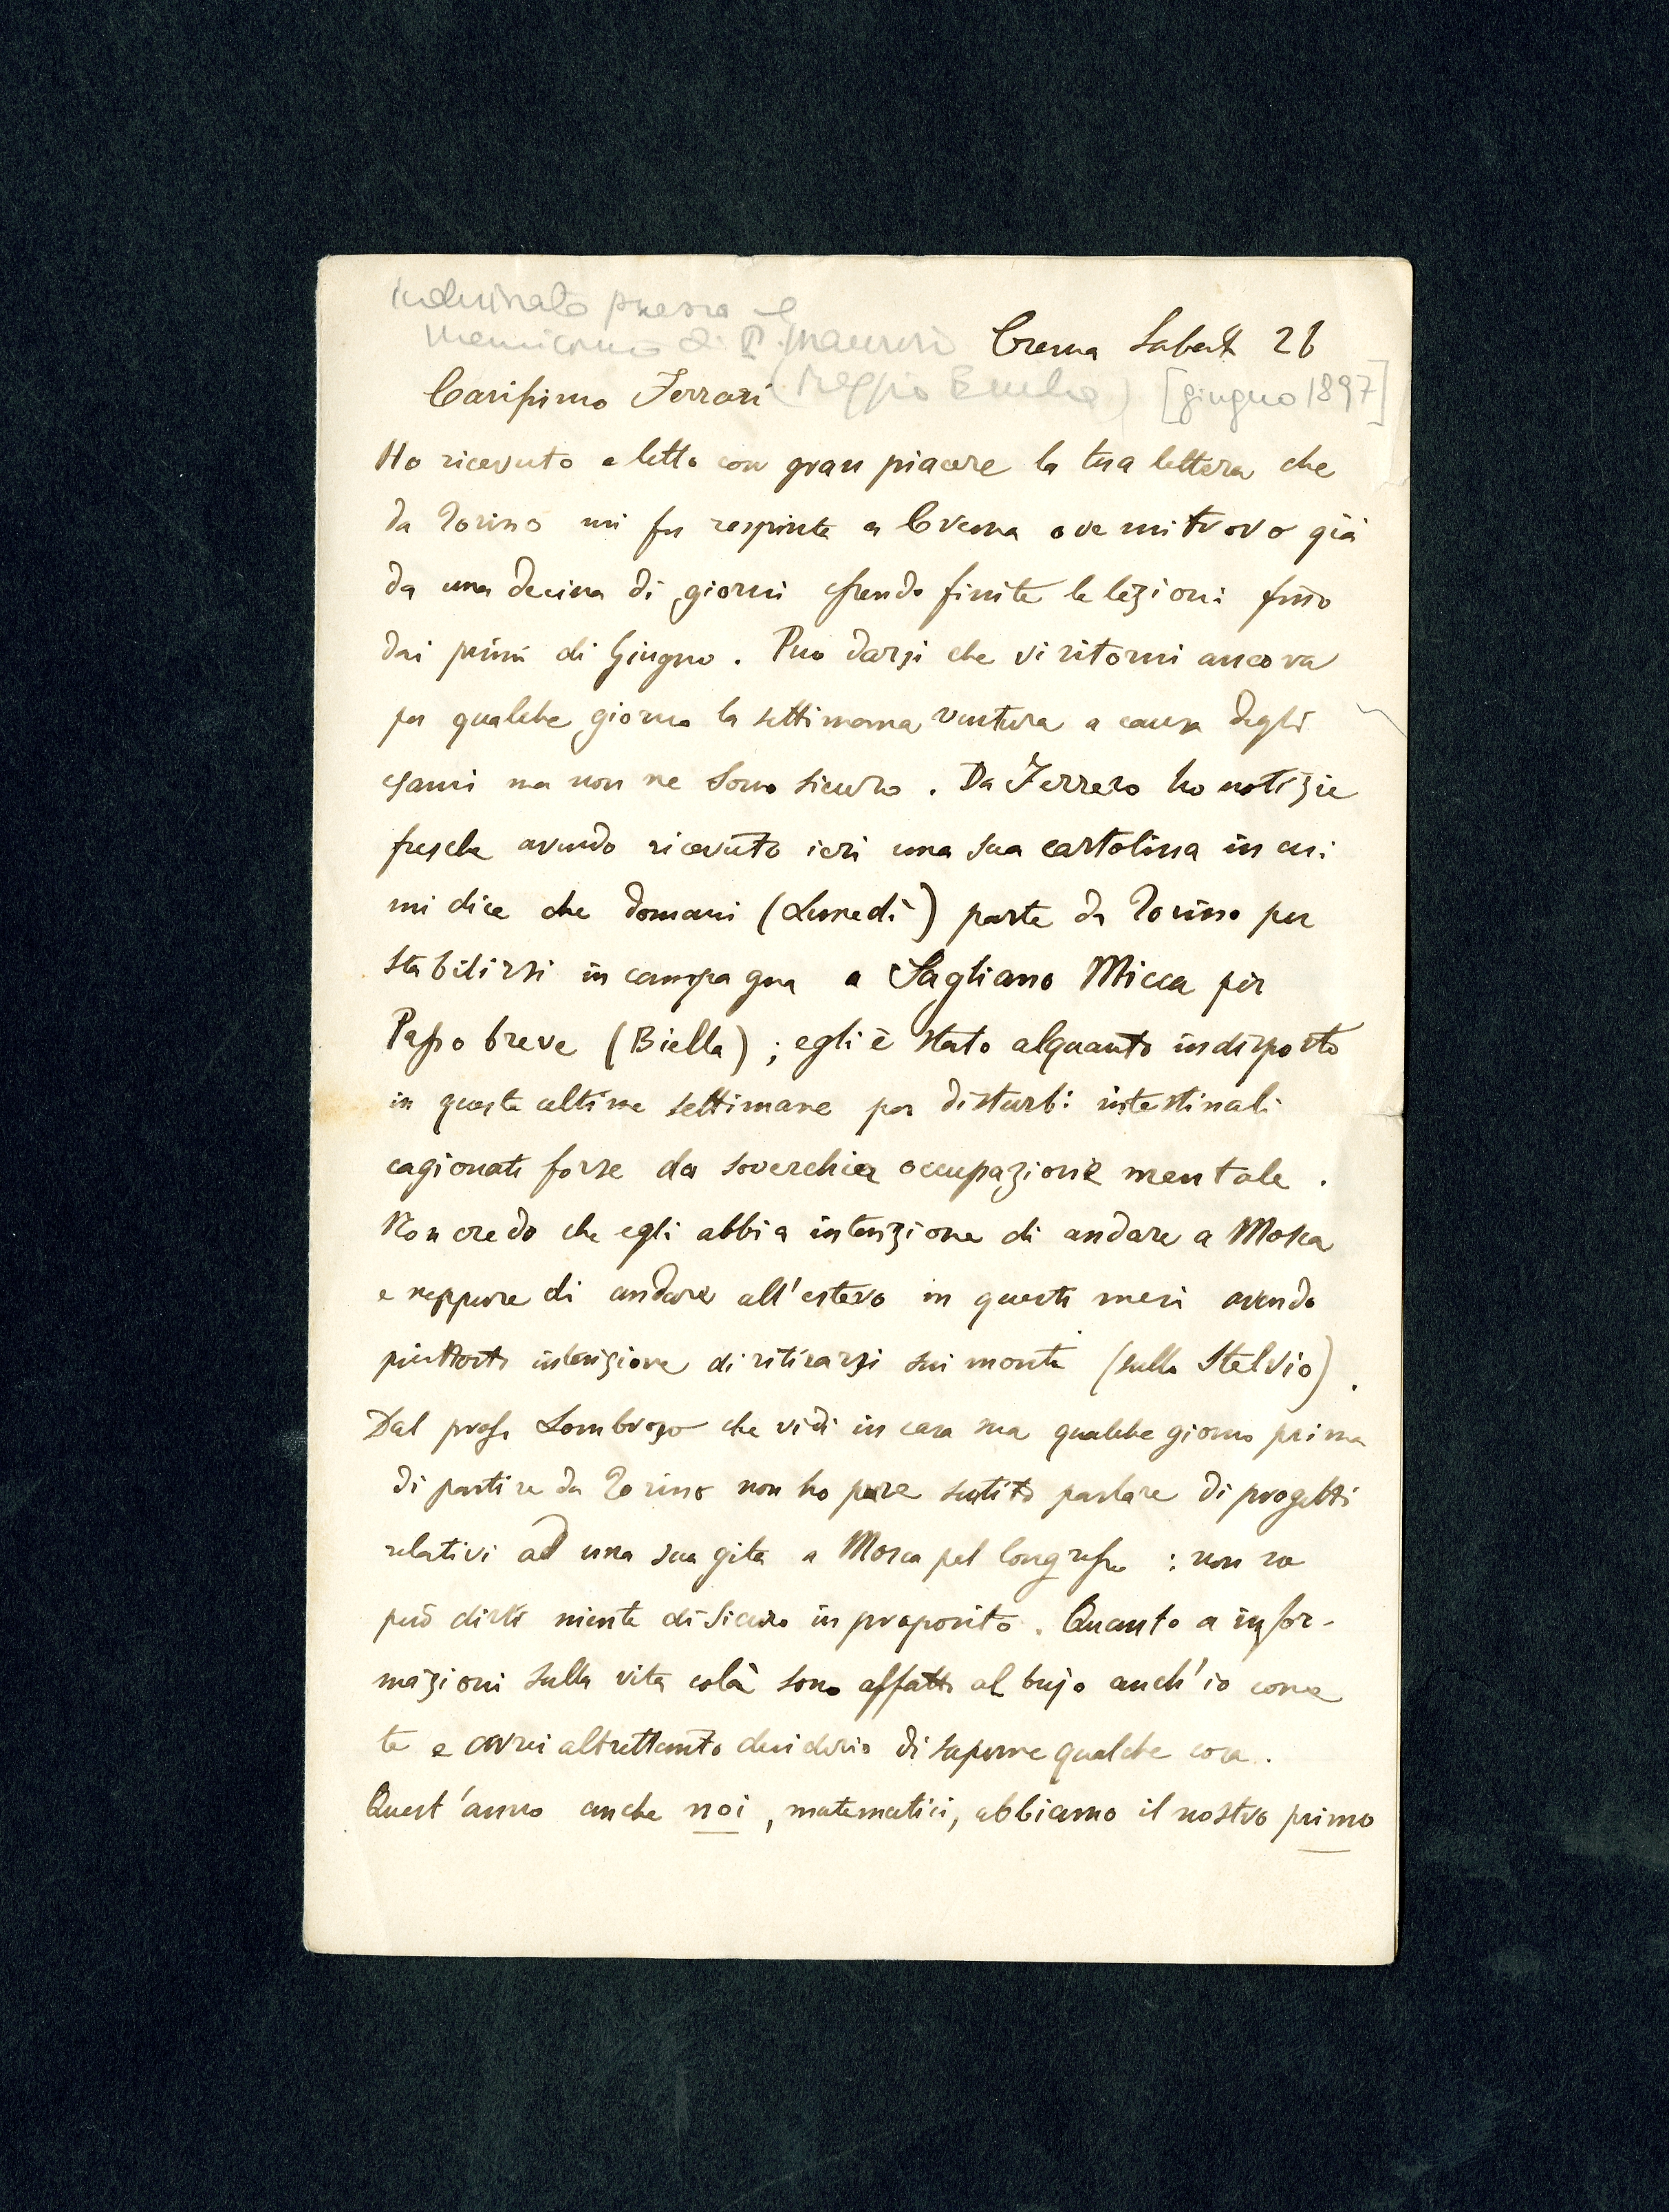 indirizzato presso il
manicomio di S. Maurizio
Crema Sabato 26
Carissimo Ferrari (Reggio Emilia) [giugno 1897]
Ho ricevuto e letto con gran piacere la tua lettera che
da Torino mi fu respinta a Crema ove mi trovo già
da una decina di giorni essendo finite le lezioni fino
dai primi di Giugno. Può darsi che vi ritorni ancora
per qualche giorno la settimana ventura a causa degli
esami ma non ne sono sicuro. Da Ferrero ho notizie
fresche avendo ricevuto ieri una sua cartolina in cui
mi dice che domani (Lunedì) parte da Torino per
stabilirsi in campagna a Sagliano Micca per
Passo breve (Biella); egli è stato alquanto indisposto
in queste ultime settimane per disturbi intestinali
cagionati forse da soverchia occupazione mentale.
Non credo che egli abbia intenzione di andare a Mosca
e neppure di andare all'estero in questi mesi avendo
piuttosto intenzione di ritirarsi sui monti (sullo Stelvio).
Dal prof. Lombroso che vidi in casa sua qualche giorno prima
di partire da Torino non ho pure sentito parlare di progetti
relativi ad una sua gita a Mosca pel Congresso: non so
però dirti niente di sicuro in proposito. Quanto a infor-
mazioni sulla vita colà sono affatto al bujo anch'io come
te e avrei altrettanto desiderio di saperne qualche cosa.
Quest'anno anche noi, matematici, abbiamo il nostro primo